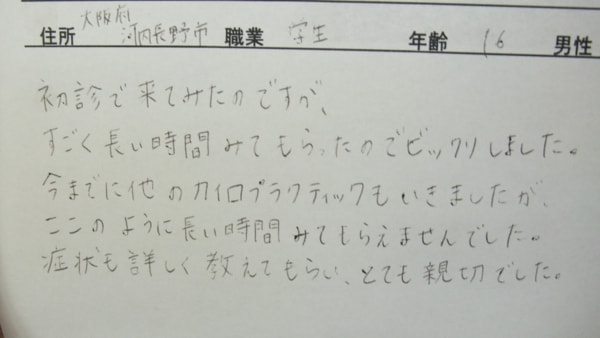 住所 大阪府河内長野市 職業 学生 年齢 16 男性
初診で来てみたのですが、
すごく長い時間みてもらったのでビックリしました。
今までに他のカイロプラクティックもいきましたが、
ここのように長い時間みてもらえませんでした。
症状も詳しく教えてもらい、とても親切でした。